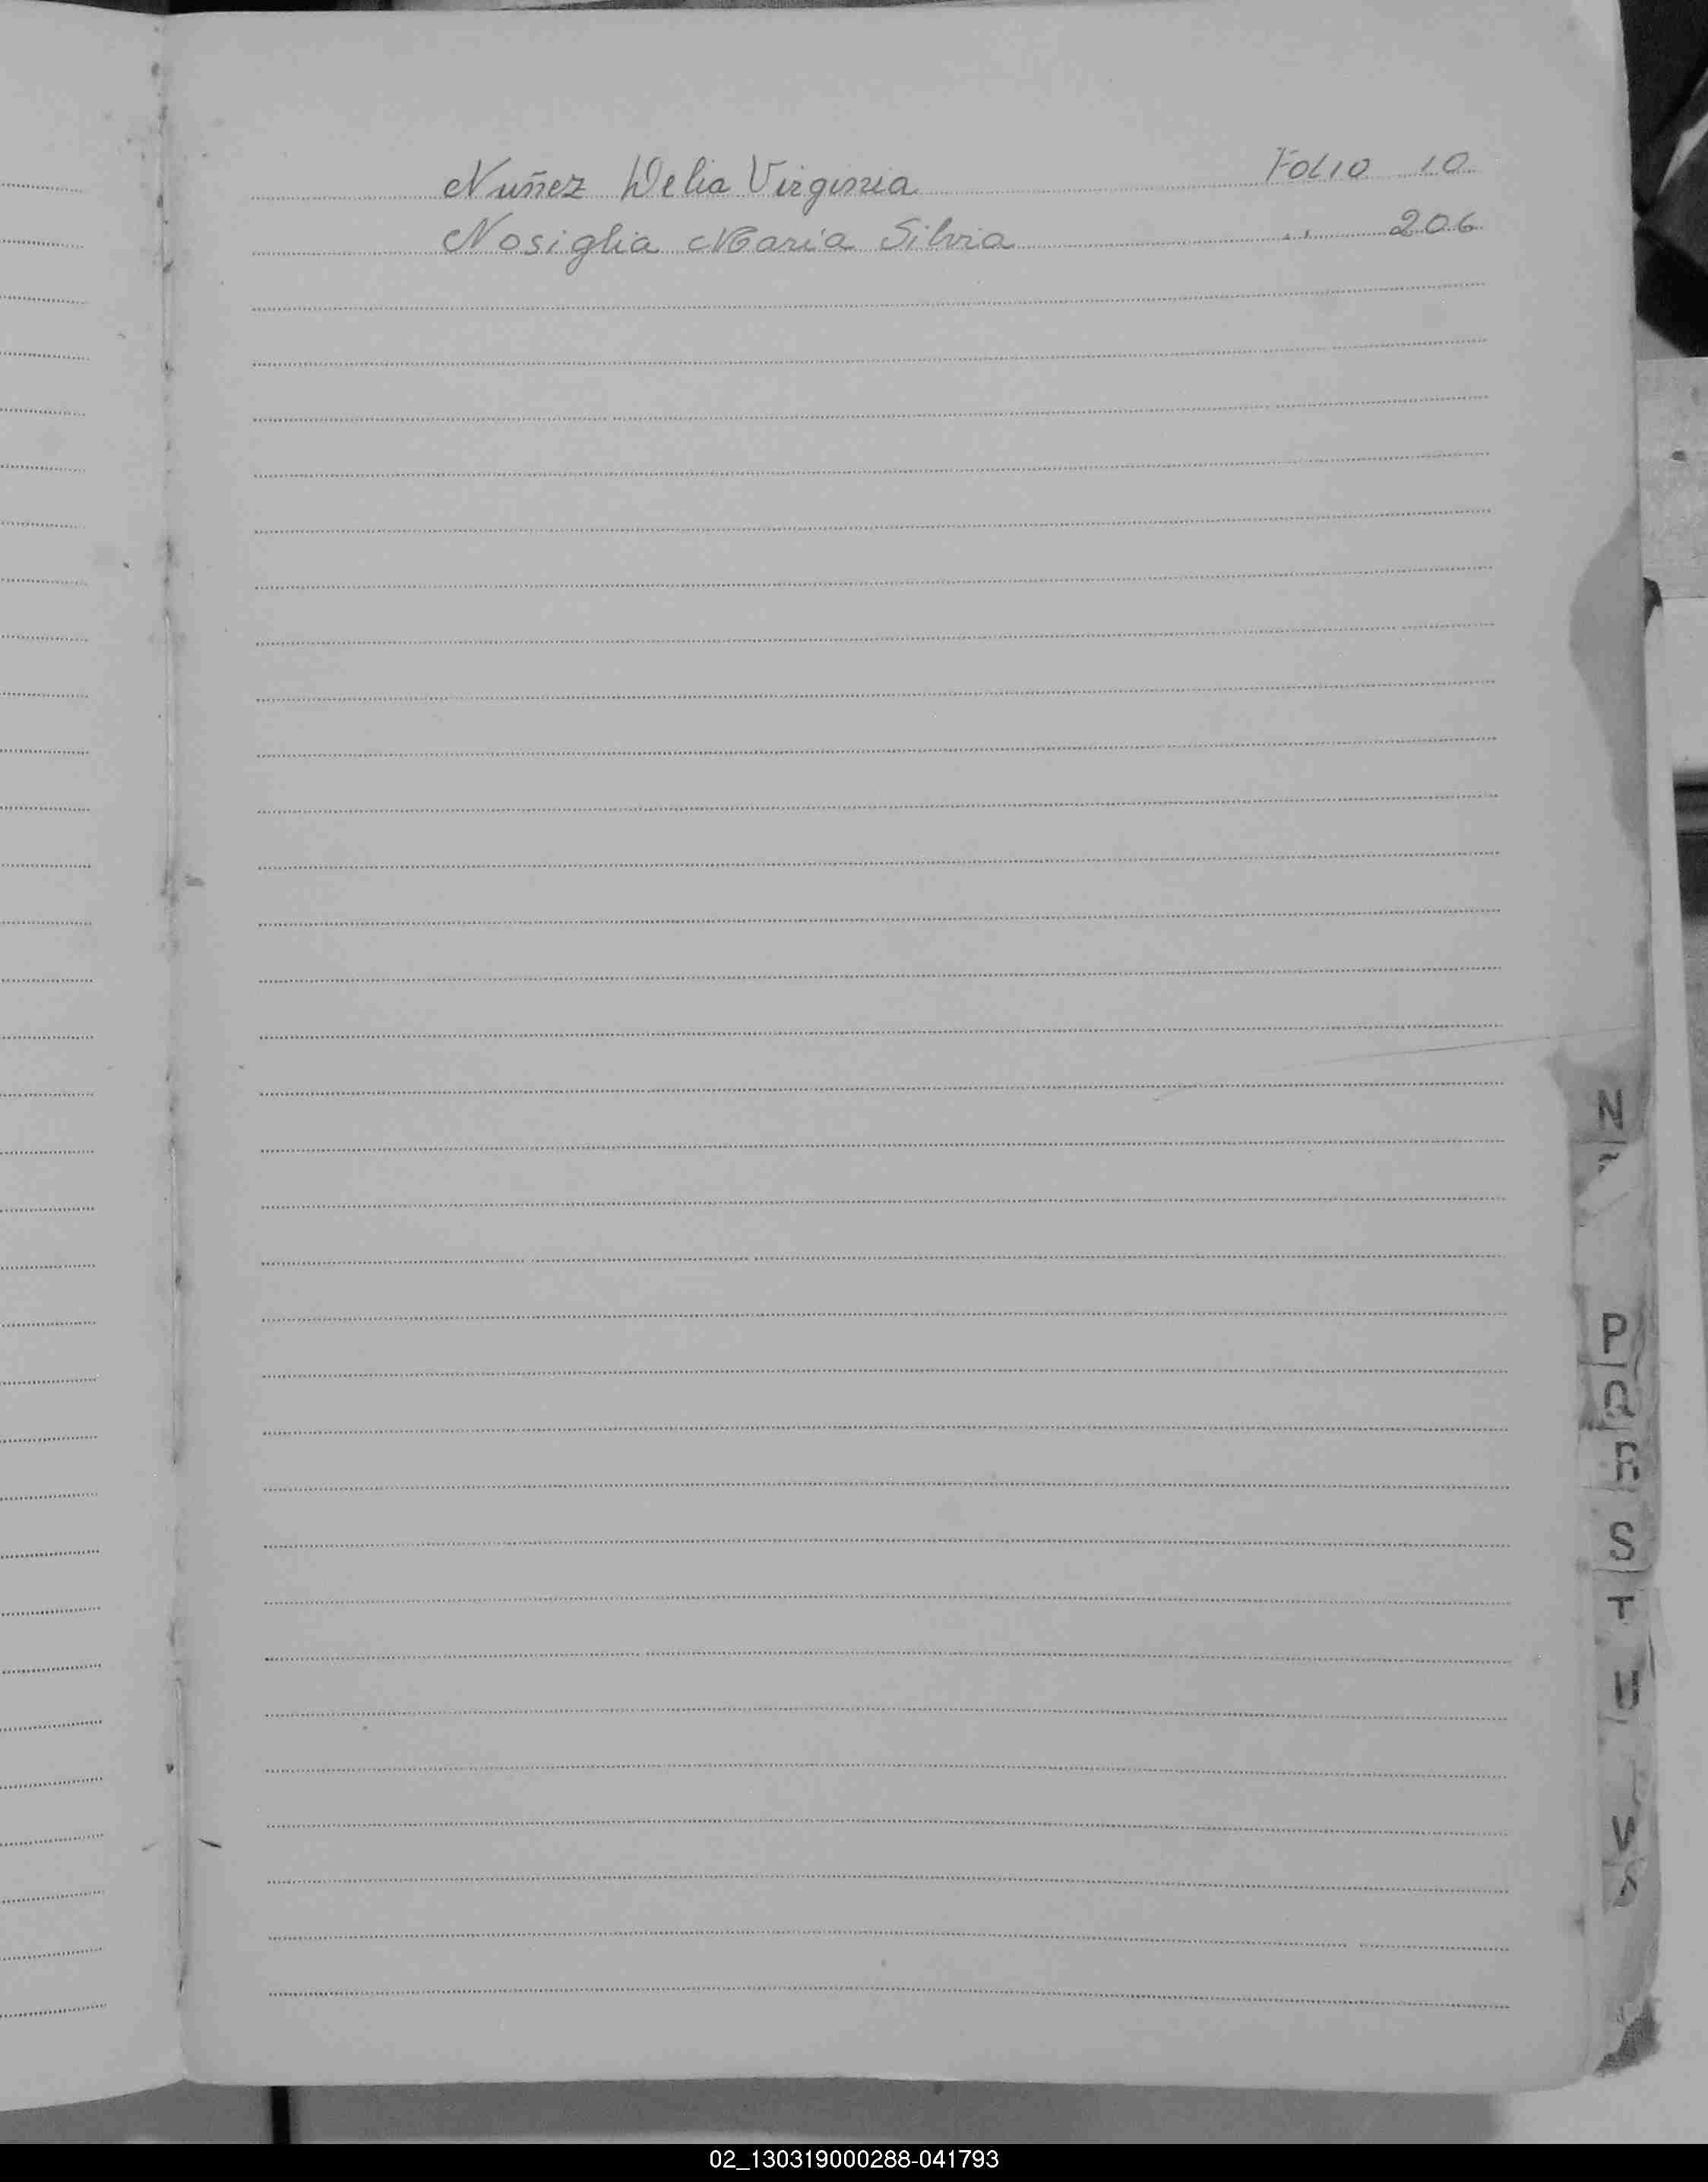 Nuñez Delia Virginia Folio 10
Nosiglia Maria Silvia " 206
N
P
Q
R
S
T
U
V
02_130319000288-041793